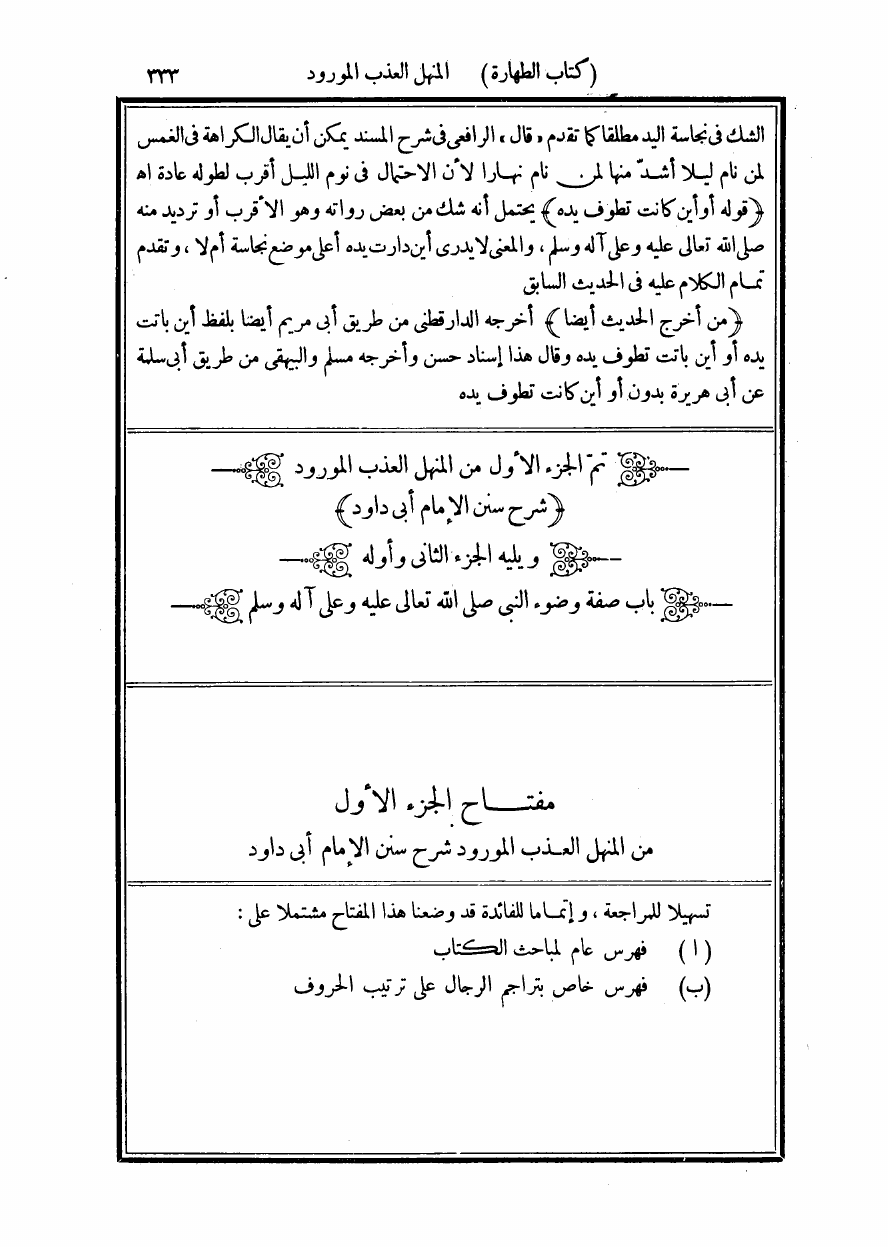 (كتاب الطهارة) المنهل العذب المورود ٣٣٣
الشك فى نجاسة اليد مطلقا كما تقدم «قال» الرافعى فى شرح المسند يمكن أن يقال الكراهة فى الغمس
لمن نام ليلا أشدّ منها لمن نام نهارا لأن الاحتمال فى نوم الليل أقرب لطوله عادة اه
﴿قوله أو أين كانت تطوف يده﴾ يحتمل أنه شك من بعض رواته وهو الأقرب أو ترديد منه
صلى الله تعالى عليه وعلى آله وسلم ، والمعنى لا يدرى أين دارت يده أعلى موضع نجاسة أم لا ، وتقدم
تمام الكلام عليه فى الحديث السابق
﴿من أخرج الحديث أيضا﴾ أخرجه الدارقطنى من طريق أبى مريم أيضا بلفظ أين باتت
يده أو أين باتت تطوف يده وقال هذا إسناد حسن وأخرجه مسلم والبيهقى من طريق أبى سلمة
عن أبى هريرة بدون أو أين كانت تطوف يده
تمّ الجزء الأول من المنهل العذب المورود
﴿شرح سنن الإمام أبى داود﴾
ويليه الجزء الثانى وأوله
باب صفة وضوء النبى صلى الله تعالى عليه وعلى آله وسلم
مفتاح الجزء الأول
من المنهل العذب المورود شرح سنن الإمام أبى داود
تسهيلا للمراجعة ، وإتماما للفائدة قد وضعنا هذا المفتاح مشتملا على :
(ا) فهرس عام لمباحث الكتاب
(ب) فهرس خاص بتراجم الرجال على ترتيب الحروف